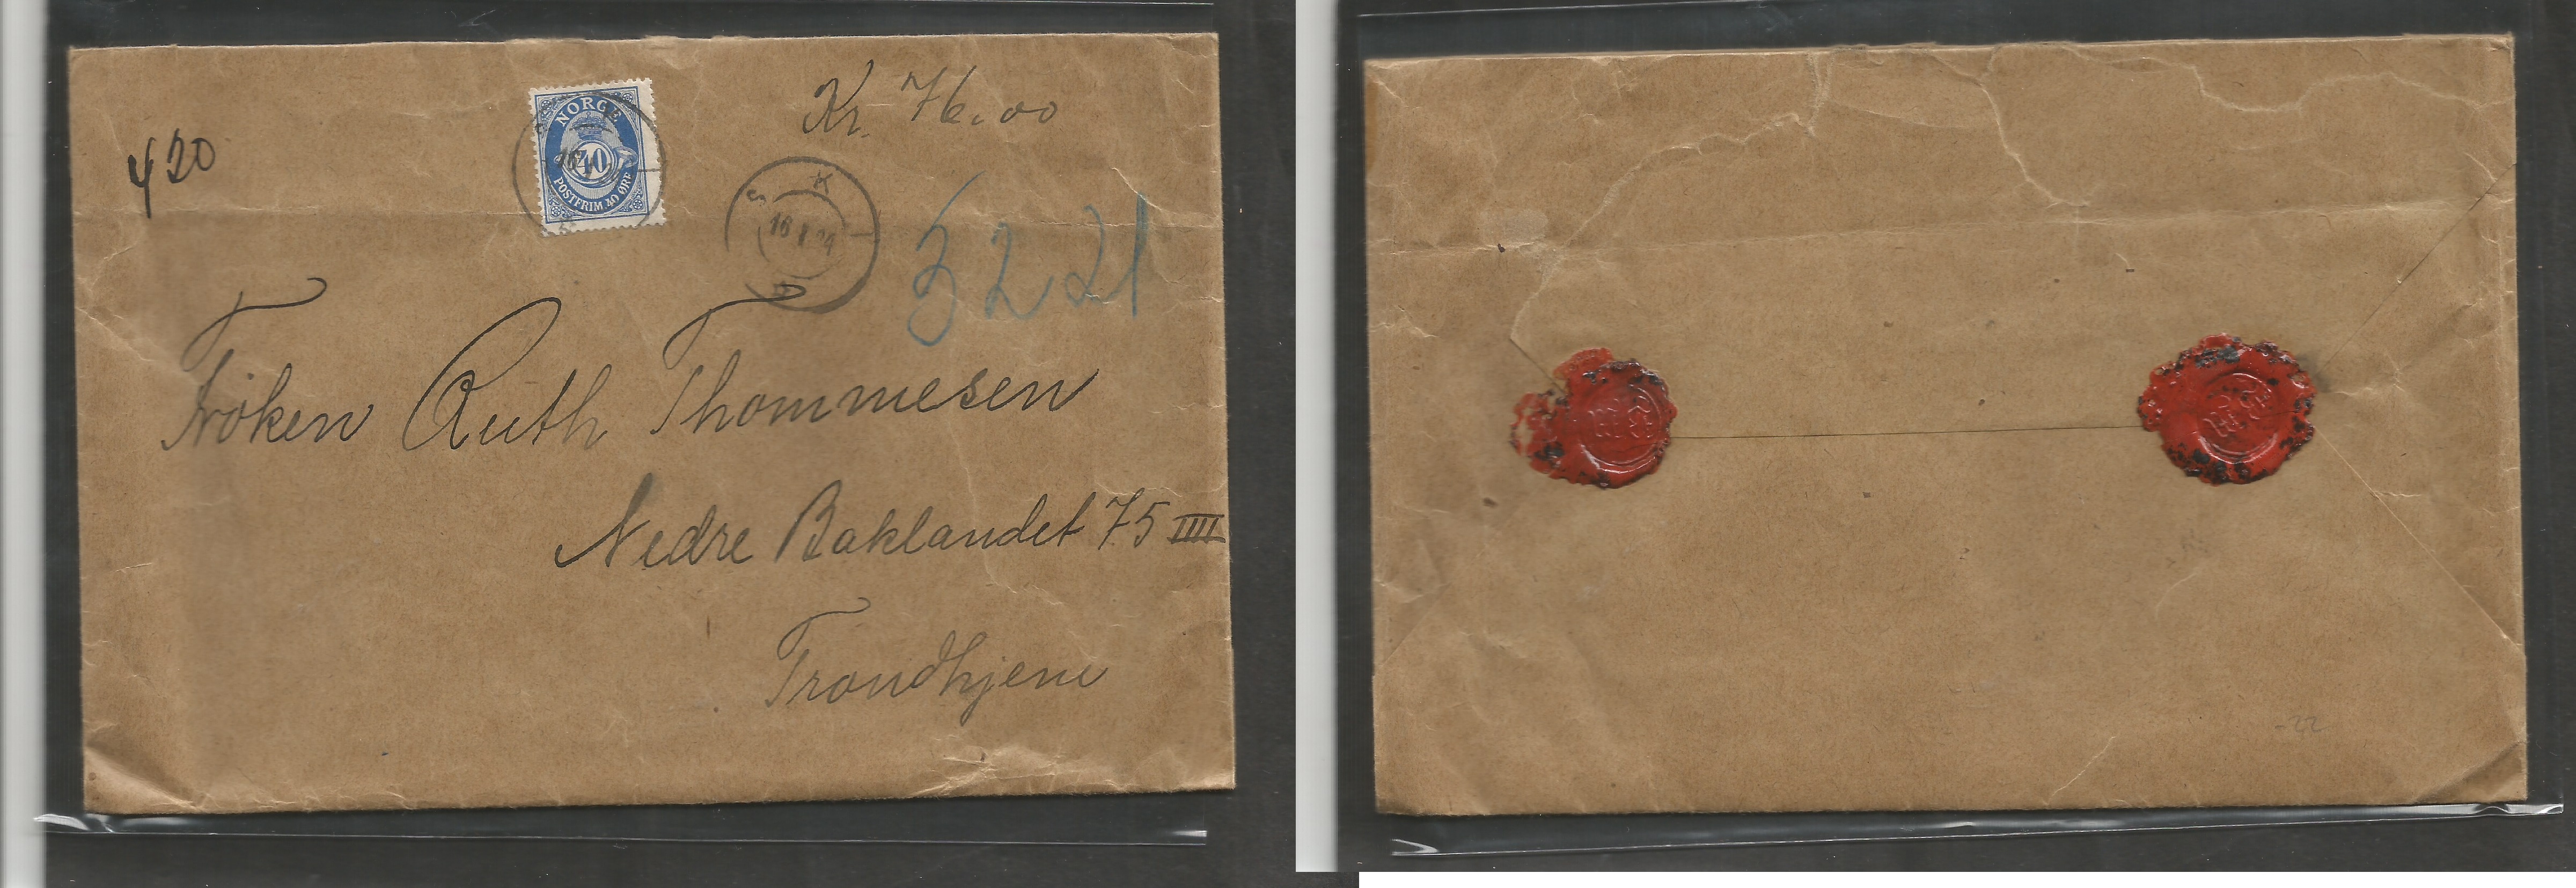 Kr. 76.00
420
NORGE
40
POSTFRIM. 40 ØRE
S K
16 X 24
3221
Frøken Ruth Thommesen
Nedre Baklandet 75 IIII
Trondhjem
-22